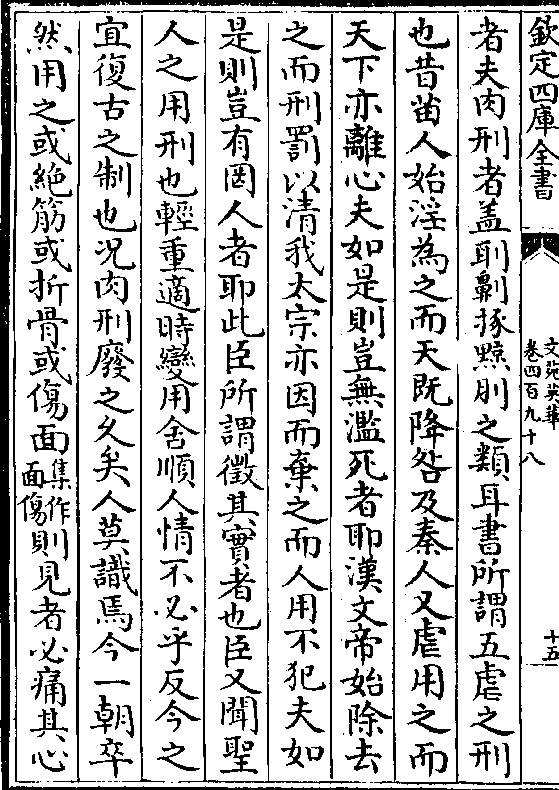 欽定四庫全書
文苑英華
卷四百九十八
十五
者夫肉刑者盖刵劓椓黥刖之類耳書所謂五虐之刑
也昔苗人始淫為之而天既降咎及秦人又虐用之而
天下亦離心夫如是則豈無濫死者耶漢文帝始除去
之而刑罰以清我太宗亦因而棄之而人用不犯夫如
是則豈有罔人者耶此臣所謂徵其實者也臣又聞聖
人之用刑也輕重適時變用舍順人情不必乎反今之
宜復古之制也况肉刑廢之乆矣人莫識焉今一朝卒
然用之或絶筋或折骨或傷面集作面傷則見者必痛其心